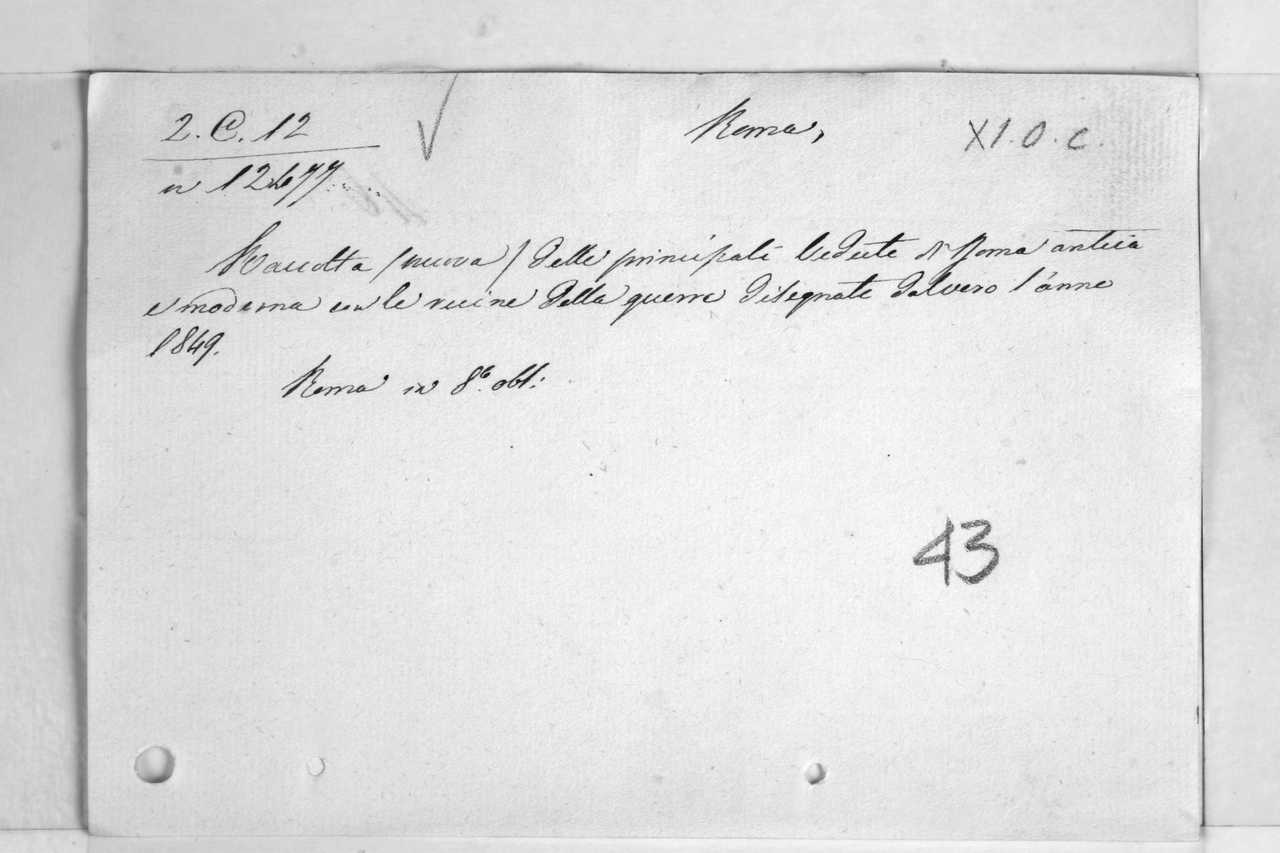 2. C. 12
Roma,
X1.0.c.
n 12477
Raccolta (nuova) delle principali Vedute di Roma antica
e moderna con le rovine della guerra disegnate dal vero l'anno
1849.
Roma in 8º. obl:
43